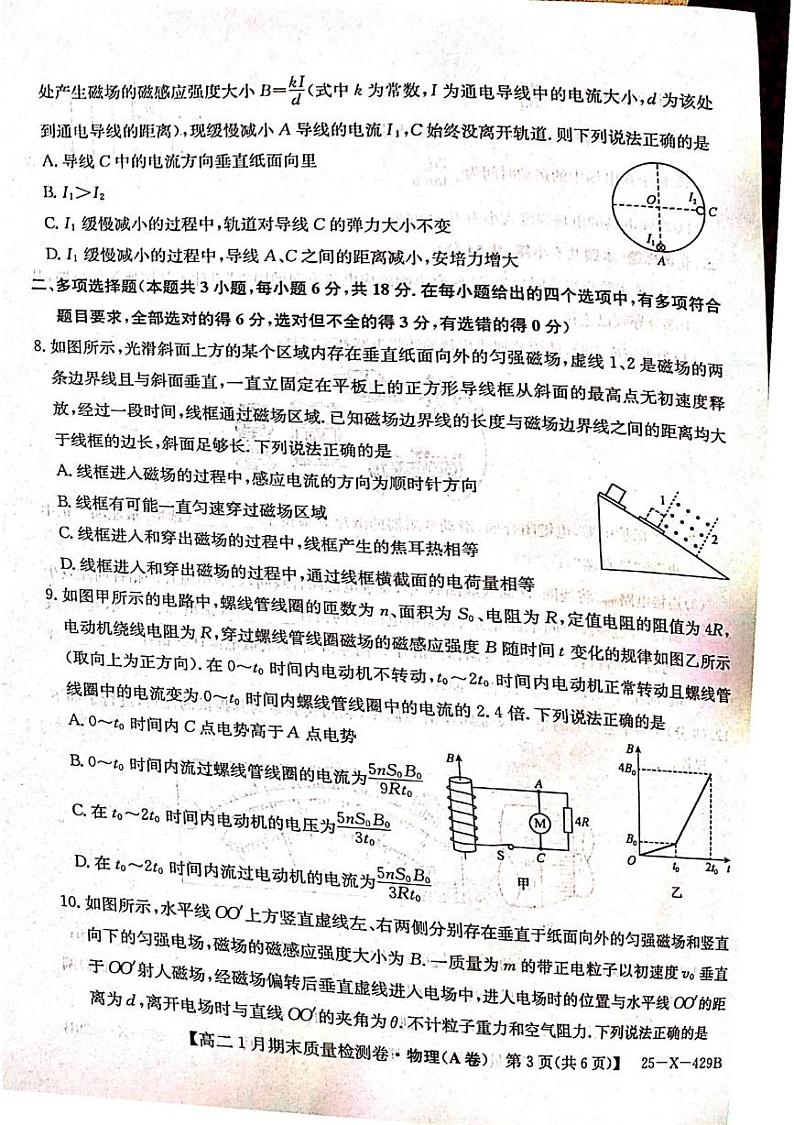 处产生磁场的磁感应强度大小 B=kI/d(式中 k 为常数,I 为通电导线中的电流大小,d 为该处
到通电导线的距离),现缓慢减小 A 导线的电流 I₁,C 始终没离开轨道. 则下列说法正确的是
A. 导线 C 中的电流方向垂直纸面向里
B. I₁>I₂
C. I₁ 缓慢减小的过程中,轨道对导线 C 的弹力大小不变
D. I₁ 缓慢减小的过程中,导线 A、C 之间的距离减小,安培力增大
O
I₂
C
I₁
A
二、多项选择题(本题共 3 小题,每小题 6 分,共 18 分. 在每小题给出的四个选项中,有多项符合
题目要求,全部选对的得 6 分,选对但不全的得 3 分,有选错的得 0 分)
8. 如图所示,光滑斜面上方的某个区域内存在垂直纸面向外的匀强磁场,虚线 1、2 是磁场的两
条边界线且与斜面垂直,一直立固定在平板上的正方形导线框从斜面的最高点无初速度释
放,经过一段时间,线框通过磁场区域. 已知磁场边界线的长度与磁场边界线之间的距离均大
于线框的边长,斜面足够长. 下列说法正确的是
A. 线框进入磁场的过程中,感应电流的方向为顺时针方向
B. 线框有可能一直匀速穿过磁场区域
C. 线框进入和穿出磁场的过程中,线框产生的焦耳热相等
D. 线框进入和穿出磁场的过程中,通过线框横截面的电荷量相等
1
2
9. 如图甲所示的电路中,螺线管线圈的匝数为 n、面积为 S₀、电阻为 R,定值电阻的阻值为 4R,
电动机绕线电阻为 R,穿过螺线管线圈磁场的磁感应强度 B 随时间 t 变化的规律如图乙所示
(取向上为正方向). 在 0~t₀ 时间内电动机不转动,t₀~2t₀ 时间内电动机正常转动且螺线管
线圈中的电流变为 0~t₀ 时间内螺线管线圈中的电流的 2.4 倍. 下列说法正确的是
A. 0~t₀ 时间内 C 点电势高于 A 点电势
B. 0~t₀ 时间内流过螺线管线圈的电流为5nS₀B₀/9Rt₀
C. 在 t₀~2t₀ 时间内电动机的电压为5nS₀B₀/3t₀
D. 在 t₀~2t₀ 时间内流过电动机的电流为5nS₀B₀/3Rt₀
B
A
M
4R
S
C
甲
B
4B₀
B₀
O
t₀
2t₀
t
乙
10. 如图所示,水平线 OO′ 上方竖直虚线左、右两侧分别存在垂直于纸面向外的匀强磁场和竖直
向下的匀强电场,磁场的磁感应强度大小为 B. 一质量为 m 的带正电粒子以初速度 v₀ 垂直
于 OO′射入磁场,经磁场偏转后垂直虚线进入电场中,进入电场时的位置与水平线 OO′的距
离为 d,离开电场时与直线 OO′的夹角为 θ. 不计粒子重力和空气阻力. 下列说法正确的是
【高二 1 月期末质量检测卷·物理(A 卷) 第 3 页(共 6 页)】 25-X-429B